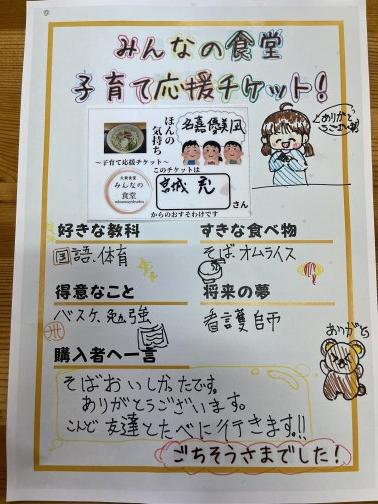 みんなの食堂
子育て応援チケット!
ほんの
気持ち
名嘉優美凪
〜子育て応援チケット〜
このチケットは
大衆食堂
みんなの
食堂
宮城 亮
さん
からのおすそわけです
ありがとう
ございます
好きな教科
すきな食べ物
国語、体育
そば、オムライス
得意なこと
将来の夢
バスケ、勉強
看護師
ありがと
購入者へ一言
そばおいしかったです。
ありがとうございます。
こんど友達とたべに行きます!!
ごちそうさまでした!